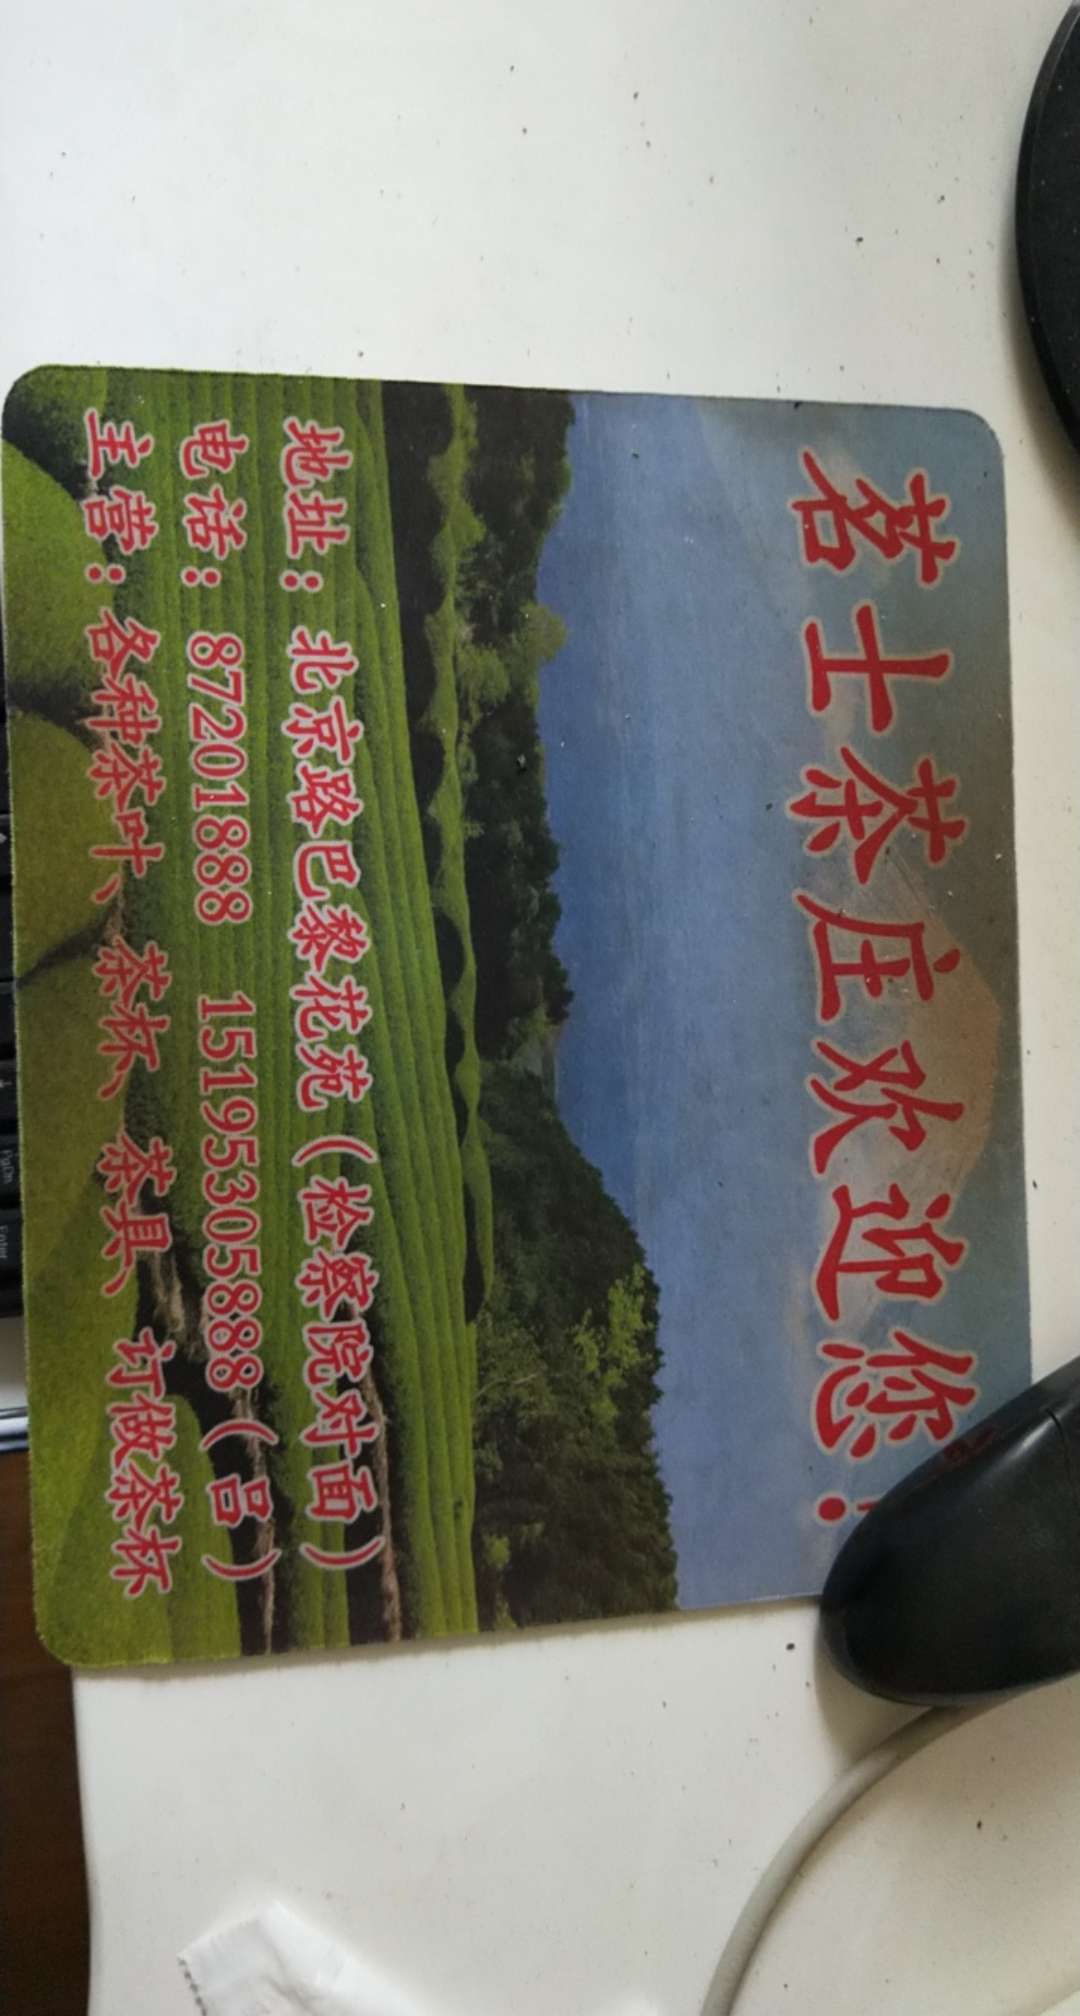 茗士茶庄欢迎您！
地址：北京路巴黎花苑（检察院对面）
电话：87201888 15195305888（吕）
主营：各种茶叶、茶杯、茶具、订做茶杯
PgDn
Enter